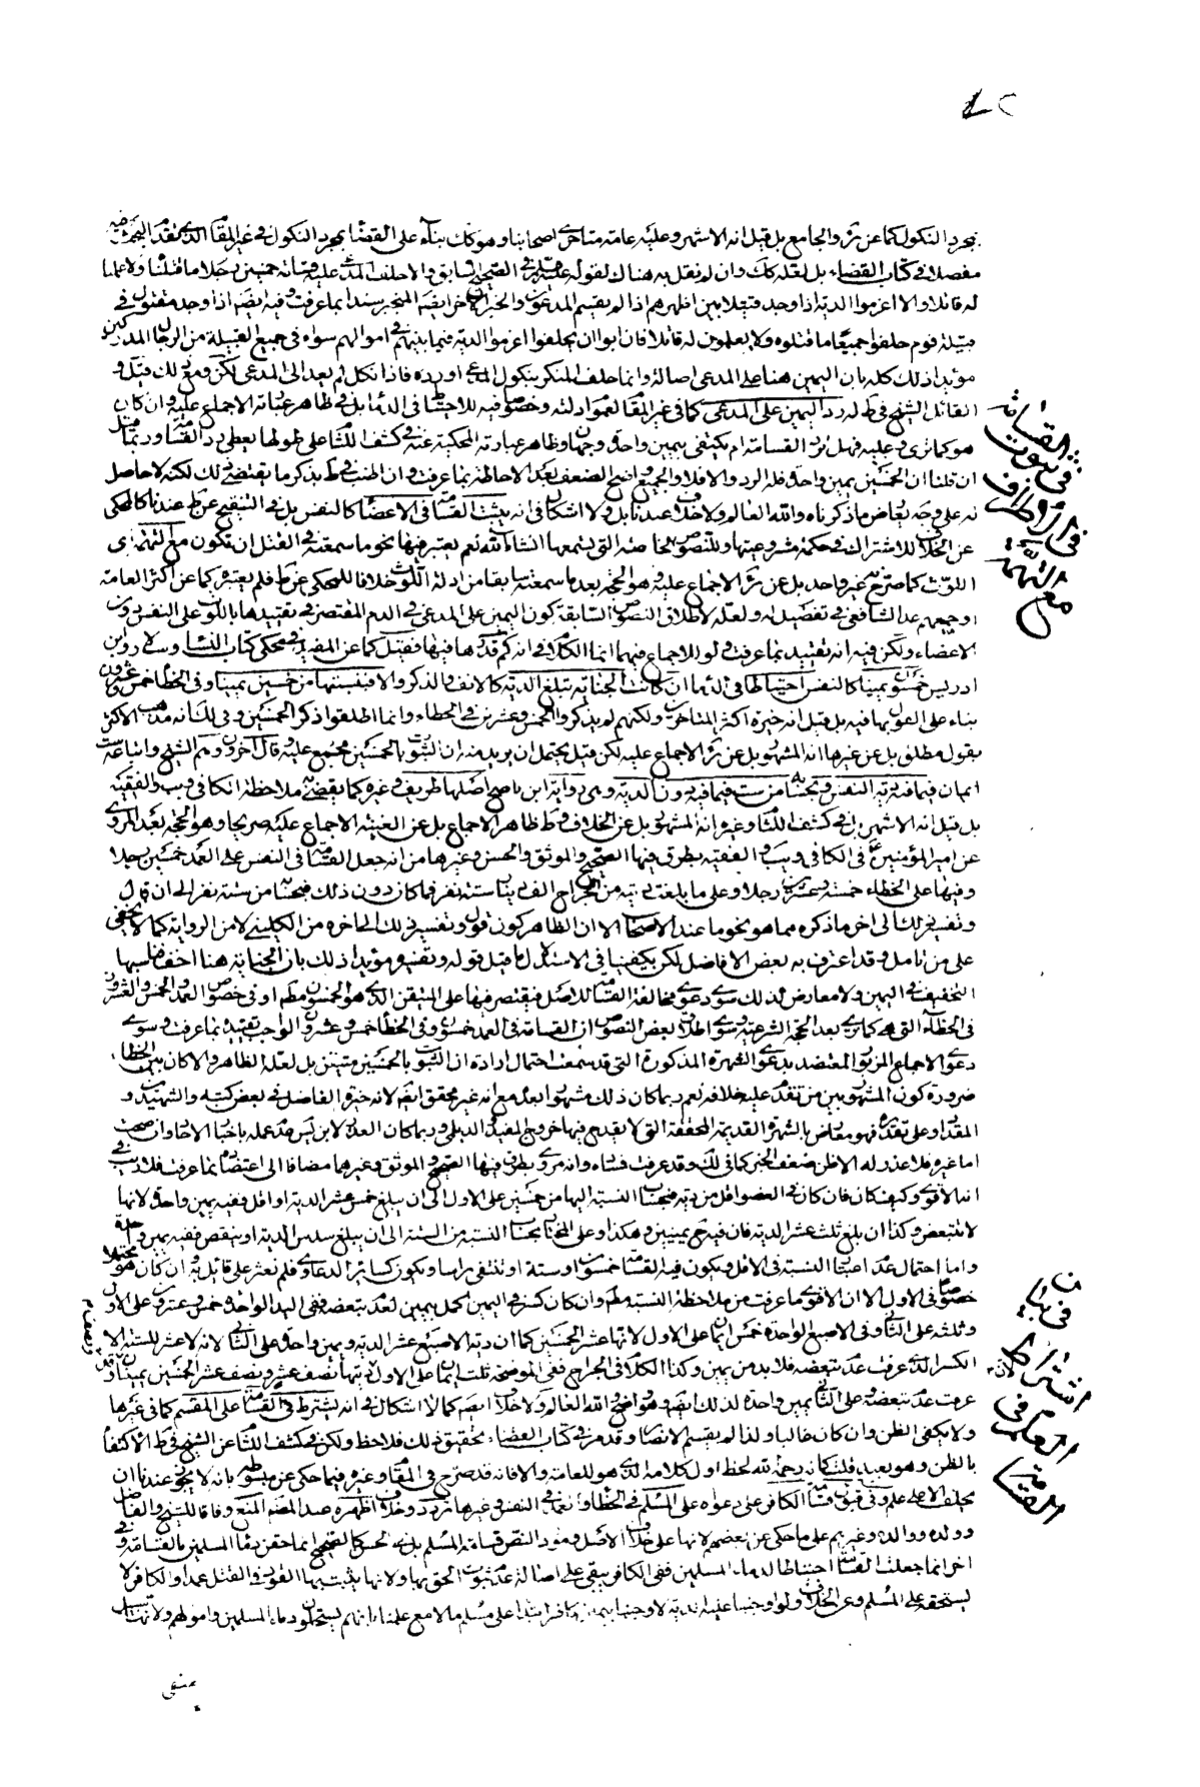 بمجرد النكول كما عن ئر والجامع بل قيل انه الاشهر وعليه عامة متاخري اصحابنا وهو كك بناء على القضا بمجرد النكول في غير المقا الذي تقدم البحث فيه
مفصلا في كتاب القضاء بل لعله كك وان لم نقل به هناك لقوله في الصحيح السابق والا حلف المدعى عليه قسامة خمسين رجلا ما قتلنا ولا علمنا
له قاتلا والا اغرموا الدية اذا وجد قتيلا بين اظهرهم اذا لم يقسم المدعون والخبر الاخر ايضا المنجبر سندا بما عرفت وفيه ايضا اذا وجد مقتول في
قبيلة قوم حلفوا جميعا ما قتلوه ولا يعلمون له قاتلا فان ابوا ان يحلفوا اغرموا الدية فيما بينهم في اموالهم سواء في جميع القبيلة من الرجال المدركين
مؤيدا ذلك كله بان اليمين هنا على المدعي اصالة وانما حلف المنكر بنكول المدعي او رده فاذا نكل لم يعد الى المدعي لكن ومع ذلك قيل و
القائل الشيخ في ط له رد اليمين على المدعي كما في غير المقا لعموم ادلته وخصوصيته للاحتياط في الدماء بل في ظاهر عبارته الاجماع عليه وان كان
هو كما ترى وعليه فهل ترد القسامة ام يكتفى بيمين واحدة وجهان وظاهر عبارته المحكية عنه في كشف اللثا على طولها يعطي رد القسامة وربما قيل
ان قلنا ان الخمسين يمين واحدة فله الرد والا فلا والجميع واضح الضعف بعد الاحاطة بما عرفت وان اطنب في ط بذكر ما يقتضي ذلك لكنه لا حاصل
له على وجه يعارض ما ذكرناه والله العالم ولا خلاف عندنا بل ولا اشكال في انه يثبت القسامة في الاعضاء كالنفس بل في التنقيح عن ط عندنا كالمحكي
عن الخلاف للاشتراك في حكمة مشروعيتها وللنصوص الخاصة التي تسمعها انشاء الله نعم يعتبر فيها نحو ما سمعته في القتل ان تكون مع التهمة اي
اللوث كما صرح به غير واحد بل عن ئر الاجماع عليه وهو الحجة بعد ما سمعته سابقا من ادلة اللوث خلافا للمحكي عن ط فلم يعتبره كما عن اكثر العامة
او جميعهم عدا الشافعي في تفصيل له ولعله لاطلاق النصوص السابقة كون اليمين على المدعي في الدم المقتصر في تقييدها باللوث على النفس دون
الاعضاء ولكن فيه انه تقييد بما عرفت فيه للاجماع فيهما انما الكلام في انه كم قدرها فيها فقيل كما عن المفيد في محكي كتاب النساء وسلار وابن
ادريس خمسون يمينا كالنفس احتياطا في الدماء ان كانت الجناية تبلغ الدية كالانف والذكر والا فبنسبتها من خمسين يمينا وفي الخطأ خمس وعشرون
بناء على القول بها فيه بل قيل انه خيرة اكثر المتاخرين ولكنهم لم يذكروا الخمس وعشرين في الخطاء وانما اطلقوا ذكر الخمسين وفي لك انه مذهب الاكثر
بقول مطلق بل عن غيرها انه المشهور بل عن ئر الاجماع عليه لكن قيل يحتمل ان يريد منه ان الثبوت بالخمسين مجمع عليه وقال اخرون وهم الشيخ واتباعه ست
ايمان فيما فيه دية النفس وبحسابه من ست فيما فيه دون الدية وهي رواية ابن ناصح اصلها ظريف وغيره كما يقضي به ملاحظة الكافي ويب والفقيه
بل قيل انه الاشهر بل في كشف اللثا وغيره انه المشهور بل عن الخلاف وط ظاهر الاجماع بل عن الغنية الاجماع عليه صريحا وهو الحجة بعد المروي
عن امير المؤمنين ع في الكافي ويب والفقيه بطرق فيها الصحيح والموثق والحسن وغيرها من انه جعل القسامة في النفس على العمد خمسين رجلا
وفيها على الخطاء خمسة وعشرين رجلا وعلى ما بلغت ديته من الجراح الف دينار ستة نفر فما كان دون ذلك فبحسابه من ستة نفر الى ان قال
وتفسير ذلك الى اخر ما ذكره مما هو نحو ما عند الاصحاب الا ان الظاهر كون قوله وتفسير ذلك الى اخره من الكليني لا من الرواية كما لا يخفى
على من تامل وقد اعترف به بعض الافاضل لكن يكفينا في الاستدلال ما قبل قوله وتفسيره مؤيدا ذلك بان الجناية هنا اخف فناسبها
التخفيف في اليمين ولا معارض لذلك سوى دعوى مخالفة القسامة للاصل فيقتصر فيها على المتيقن الذي هو الخمسون مطلقا او في خصوص العمد والخمس والعشرون
في الخطأ التي هي كما ترى بعد الحجة الشرعية وسوى اطلاق بعض النصوص ان القسامة في العمد خمسون وفي الخطأ خمس وعشرون الواجب تقييده بما عرفت وسوى
دعوى الاجماع المزبور المعتضد بدعوى الشهرة المذكورة التي قد سمعت احتمال ارادة ان الثبوت بالخمسين متيقن بل لعله الظاهر والا كان بين الخطاء
ضرورة كون المشهور بين من تقدم عليه خلافه نعم ربما كان ذلك مشهورا بعده مع انه غير محقق ايضا لانه خيرة الفاضل في بعض كتبه والشهيدين و
المقداد وعلى تقدير فهو معارض بالشهرة القديمة المحققة التي لا يقدح فيها خروج المفيد والديلمي وربما كان العذر لابن ادريس عدم عمله باخبار الاحاد وان صحت
اما غيره فلا عذر له الا ظن ضعف الخبر كما في لك وقد عرفت فساده وانه مروي بطرق فيها الصحيح والموثق وغيرهما مضافا الى اعتضاده بما عرفت فلا ريب في
انه الاقوى وكيف كان فان كان في العضو اقل من دية فبحساب النسبة اليها من خمسين على الاول الى ان يبلغ خمس عشر الدية او اقل ففيه يمين واحدة لانها
لا تتبعض وكذا ان بلغ ثلث عشر الدية فان فيه ح يمينين وهكذا وعلى المختار بحساب النسبة من الستة الى ان يبلغ سدس الدية او ينقص ففيه يمين واحدة
واما احتمال عدم اعتبار النسبة في الاقل ويكون فيه القسامة خمسون او ستة او تنتفي راسا ويكون كسائر الدعاوى فلم نعثر على قائل به وان كان هو محتملا
خصوصا في الاول الا ان الاقوى ما عرفت من ملاحظة النسبة مطلقا وان كان كسر في اليمين اكمل بيمين لعدم تبعضه ففي اليد الواحدة خمس وعشرون على الاول
وثلثة على الثاني وفي الاصبع الواحدة خمس ايمان على الاول لانها عشر الخمسين كما ان دية الاصبع عشر الدية ويمين واحدة على الثاني لانه لا عشر للستة الا
الكسر الذي عرفت عدم تبعضه فلا بد من يمين وكذا الكلام في الجراح ففي الموضحة ثلث ايمان على الاول لان ديتها نصف عشر ونصف عشر الخمسين يمينان ونصف وقد
عرفت عدم تبعضه وعلى الثاني يمين واحدة لذلك ايضا وهو واضح والله العالم ولا خلاف ايضا كما لا اشكال في انه يشترط في القسامة علم المقسم كما في غيرها
ولا يكفي الظن وان كان غالبا ولذا لم يقسم الانصار وقد مر في كتاب القضاء تحقيق ذلك فلاحظ ولكن في كشف اللثا عن الشيخ في ط الاكتفاء
بالظن وهو بعيد قلت كانه رحمه الله لحظ اول كلامه الذي هو للعامة والا فانه قد صرح في المقا وغيره فيما حكي عن مبسوطه بانه لا يجوز عندنا ان
يحلف الا على علم وفي قبول قسامة الكافر على دعواه على المسلم في الخطاء والعمد في النفس وغيرها تردد وخلاف اظهره عند المصنف المنع وفاقا للشيخ والفاضل
وولده ووالده وغيرهم على ما حكي عن بعضهم لانها على خلاف الاصل ومورد النص قسامة المسلم بل في الحسن كالصحيح انما حقن دماء المسلمين بالقسامة وفي
اخر انما جعلت القسامة احتياطا لدماء المسلمين ففي الكافر يبقى على اصالة عدم ثبوت الحق بها ولانها يثبت بها القود في القتل عمدا والكافر لا
يستحقه على المسلم وعن الخلاف ولو اوجبنا عليه الدية لاوجبنا بيمين كافر ابتداء على مسلم مالا مع علمنا بانهم يستحلون دماء المسلمين واموالهم ولانه سبيل
في ثبوت القسامة
في الاطراف
مع التهمة
في بيان
اشتراط
العلم في
القسامة
منفي